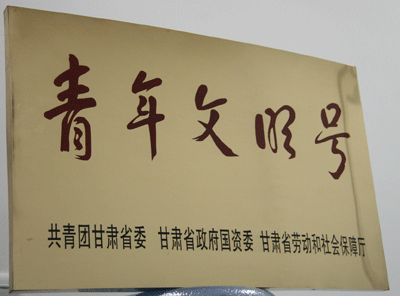 青年文明号
共青团甘肃省委 甘肃省政府国资委 甘肃省劳动和社会保障厅